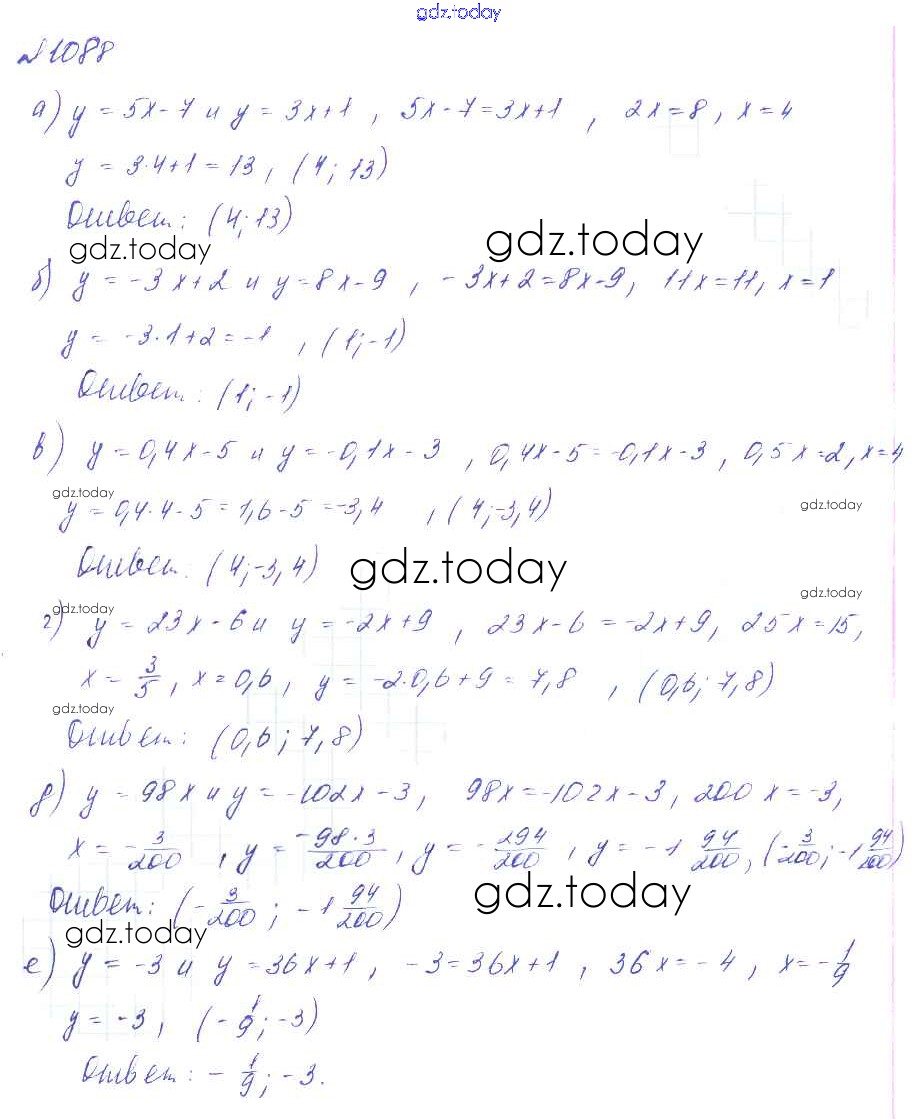 gdz.today
№1088
а) y = 5x-7 и y = 3x+1 , 5x-7=3x+1 , 2x=8, x=4
y = 3·4+1=13, (4; 13)
Ответ: (4; 13)
gdz.today gdz.today
б) y = -3x+2 и y=8x-9 , -3x+2=8x-9, 11x=11, x=1
y = -3·1+2=-1 , (1;-1)
Ответ: (1;-1)
в) y=0,4x-5 и y=-0,1x-3 , 0,4x-5=-0,1x-3, 0,5x=2, x=4
gdz.today
y=0,4·4-5=1,6-5=-3,4 , (4;-3,4) gdz.today
Ответ: (4;-3,4) gdz.today
gdz.today
gdz.today
г) y=23x-6 и y=-2x+9 , 23x-6=-2x+9, 25x=15,
x=3/5, x=0,6, y=-2·0,6+9=7,8 , (0,6; 7,8)
gdz.today
Ответ: (0,6; 7,8)
д) y=98x и y=-102x-3, 98x=-102x-3, 200x=-3,
x=-3/200, y=-98·3/200, y=-294/200, y=-1 94/200, (-3/200; -1 94/200)
gdz.today
Ответ: (-3/200; -1 94/200)
gdz.today
е) y=-3 и y=36x+1, -3=36x+1, 36x=-4, x=-1/9
y=-3, (-1/9; -3)
Ответ: -1/9; -3.